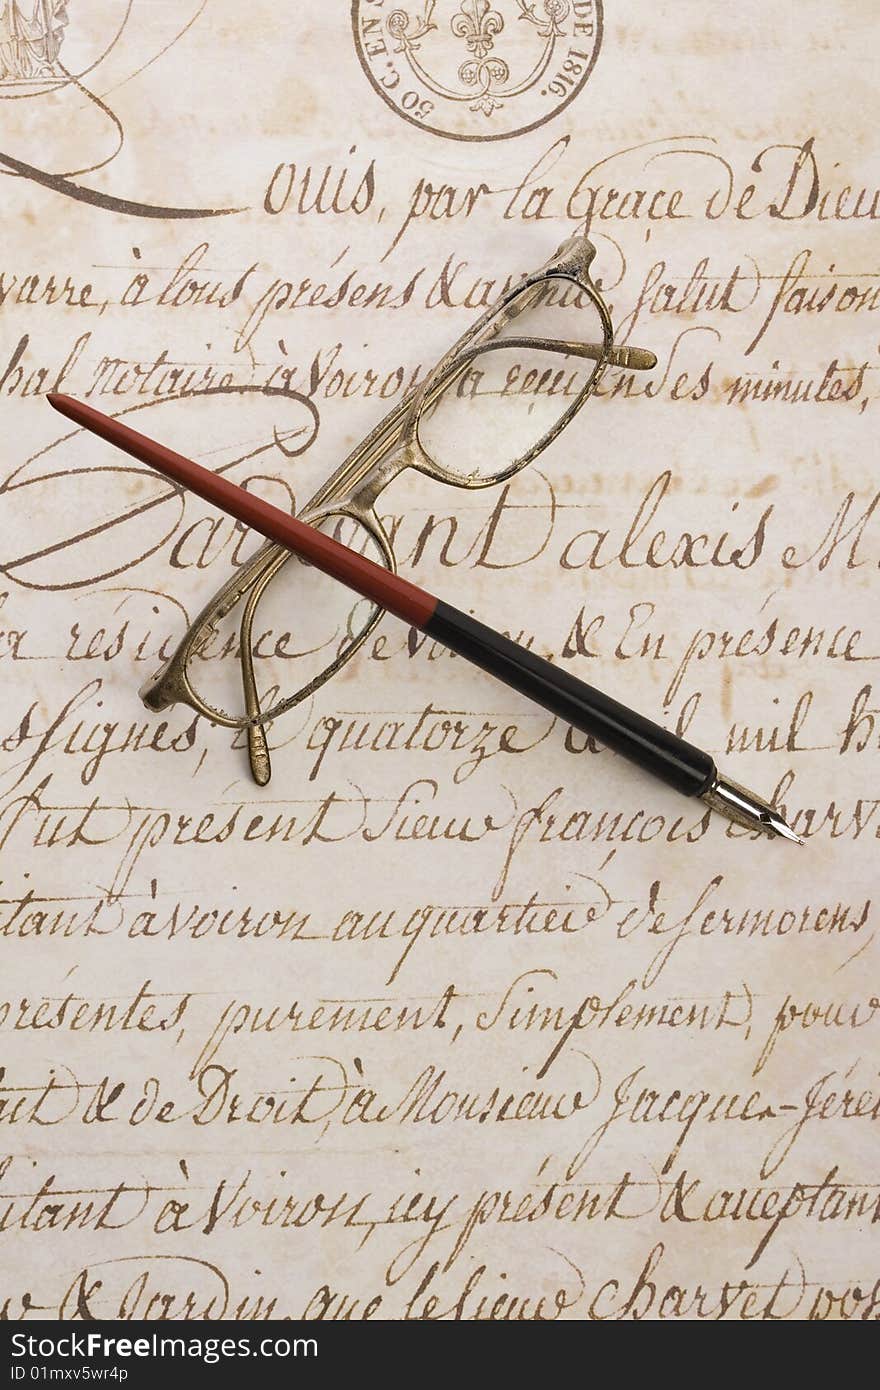 50 C. EN S DE 1816.
Louis, par la Grace de Dieu
varre, à tous présens & avenir, Salut faison
hal notaire à Voiron, a reçu en ses minutes,
Pardevant alexis M.
la résidence de Voiron, & En présence
ssignés, le quatorze avril mil h
fut présent Sieur françois Charv
itant à Voiron au quartier de Sermorens,
présentes, purement, Simplement, pour
ait & de Droit, à Monsieur Jacque-Jéré
itant à Voiron, icy présent & acceptant
& Jardin que le sieur Charvet pos
StockFreeImages.com
ID 01mxv5wr4p